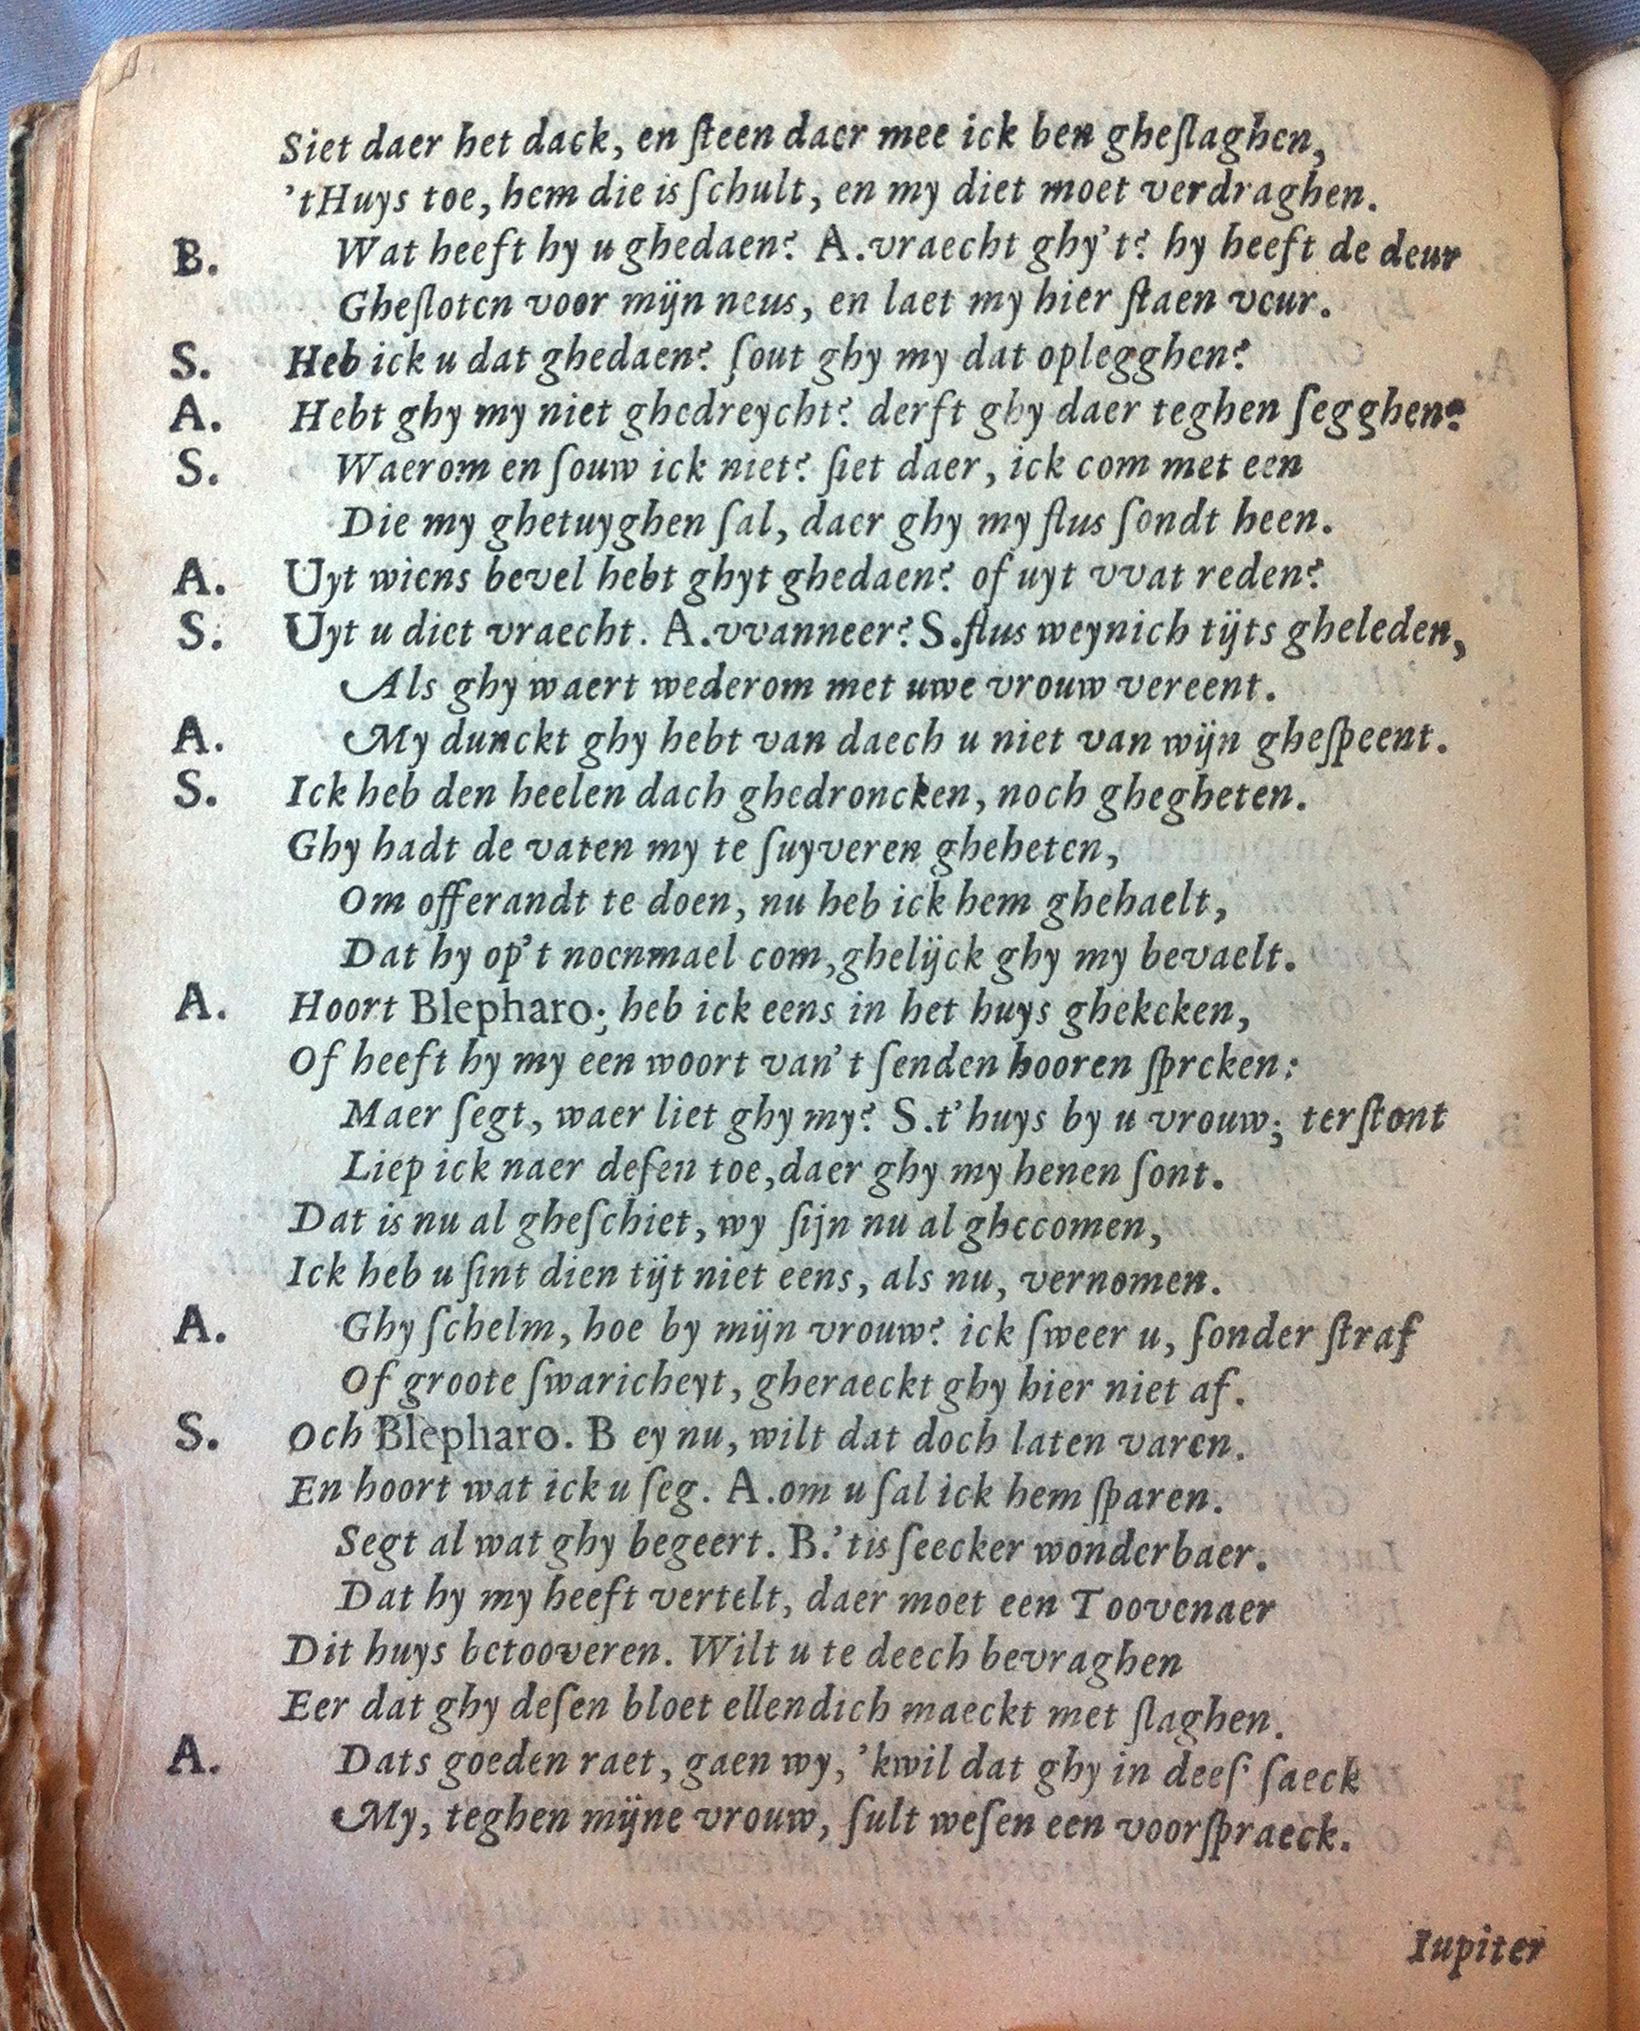 Siet daer het dack, en ſteen daer mee ick ben gheſlaghen,
'tHuys toe, hem die is ſchult, en my diet moet verdraghen.
B. Wat heeft hy u ghedaen? A.vraecht ghy't? hy heeft de deur
Gheſloten voor mijn neus, en laet my hier ſtaen veur.
S. Heb ick u dat ghedaen? ſout ghy my dat oplegghen?
A. Hebt ghy my niet ghedreycht? derft ghy daer teghen ſegghen?
S. Waerom en ſouw ick niet? ſiet daer, ick com met een
Die my ghetuyghen ſal, daer ghy my flus ſondt heen.
A. Uyt wiens bevel hebt ghyt ghedaen? of uyt vvat reden?
S. Uyt u diet vraecht. A.vvanneer? S.flus weynich tijts gheleden,
Als ghy waert wederom met uwe vrouw vereent.
A. My dunckt ghy hebt van daech u niet van wijn gheſpeent.
S. Ick heb den heelen dach ghedroncken, noch ghegheten.
Ghy hadt de vaten my te ſuyveren gheheten,
Om offerandt te doen, nu heb ick hem ghehaelt,
Dat hy op't noenmael com,ghelijck ghy my bevaelt.
A. Hoort Blepharo; heb ick eens in het huys ghekeken,
Of heeft hy my een woort van't ſenden hooren ſpreken:
Maer ſegt, waer liet ghy my? S.t'huys by u vrouw; terſtont
Liep ick naer deſen toe,daer ghy my henen ſont.
Dat is nu al gheſchiet, wy ſijn nu al ghecomen,
Ick heb u ſint dien tijt niet eens, als nu, vernomen.
A. Ghy ſchelm, hoe by mijn vrouw? ick ſweer u, ſonder ſtraf
Of groote ſwaricheyt, gheraeckt ghy hier niet af.
S. Och Blepharo. B ey nu, wilt dat doch laten varen.
En hoort wat ick u ſeg. A.om u ſal ick hem ſparen.
Segt al wat ghy begeert. B.'tis ſeecker wonderbaer.
Dat hy my heeft vertelt, daer moet een Toovenaer
Dit huys betooveren. Wilt u te deech bevraghen
Eer dat ghy deſen bloet ellendich maeckt met ſlaghen.
A. Dats goeden raet, gaen wy, 'kwil dat ghy in deeſ' ſaeck
My, teghen mijne vrouw, ſult weſen een voorſpraeck.
Iupiter